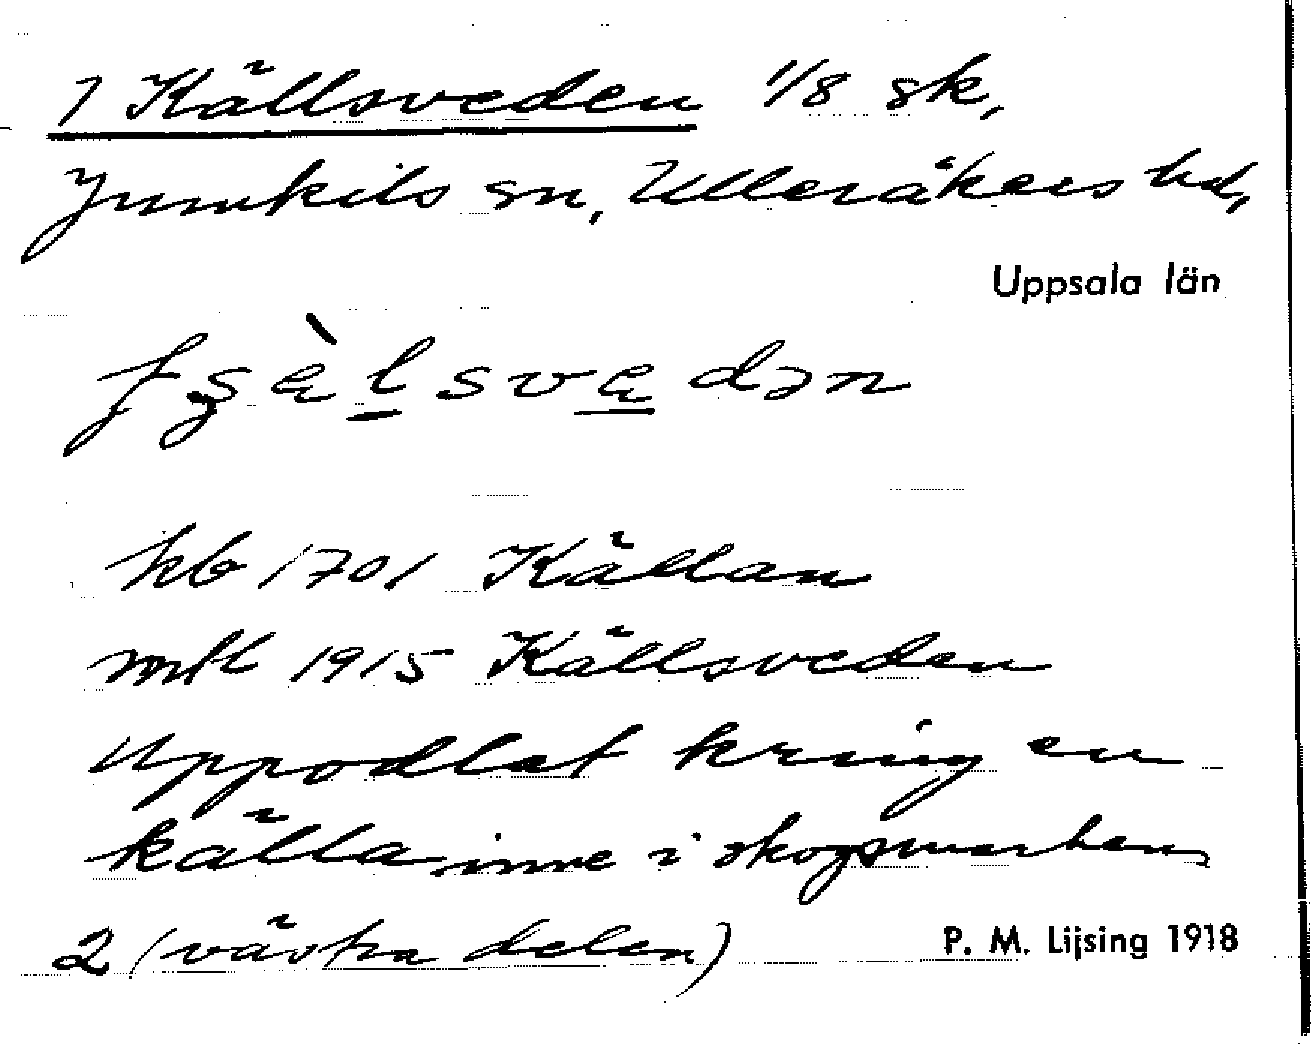 1 Källsveden 1/8 sk,
Jumkils sn, Ulleråkers hd,
Uppsala län
hb 1701 Källan
mtl 1915 Källsveden
Uppodlat kring en
källa inne i skogsmarken
2 (västra delen)
P. M. Lijsing 1918